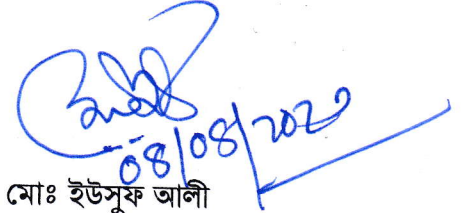 08/08/2023
মোঃ ইউসুফ আলী